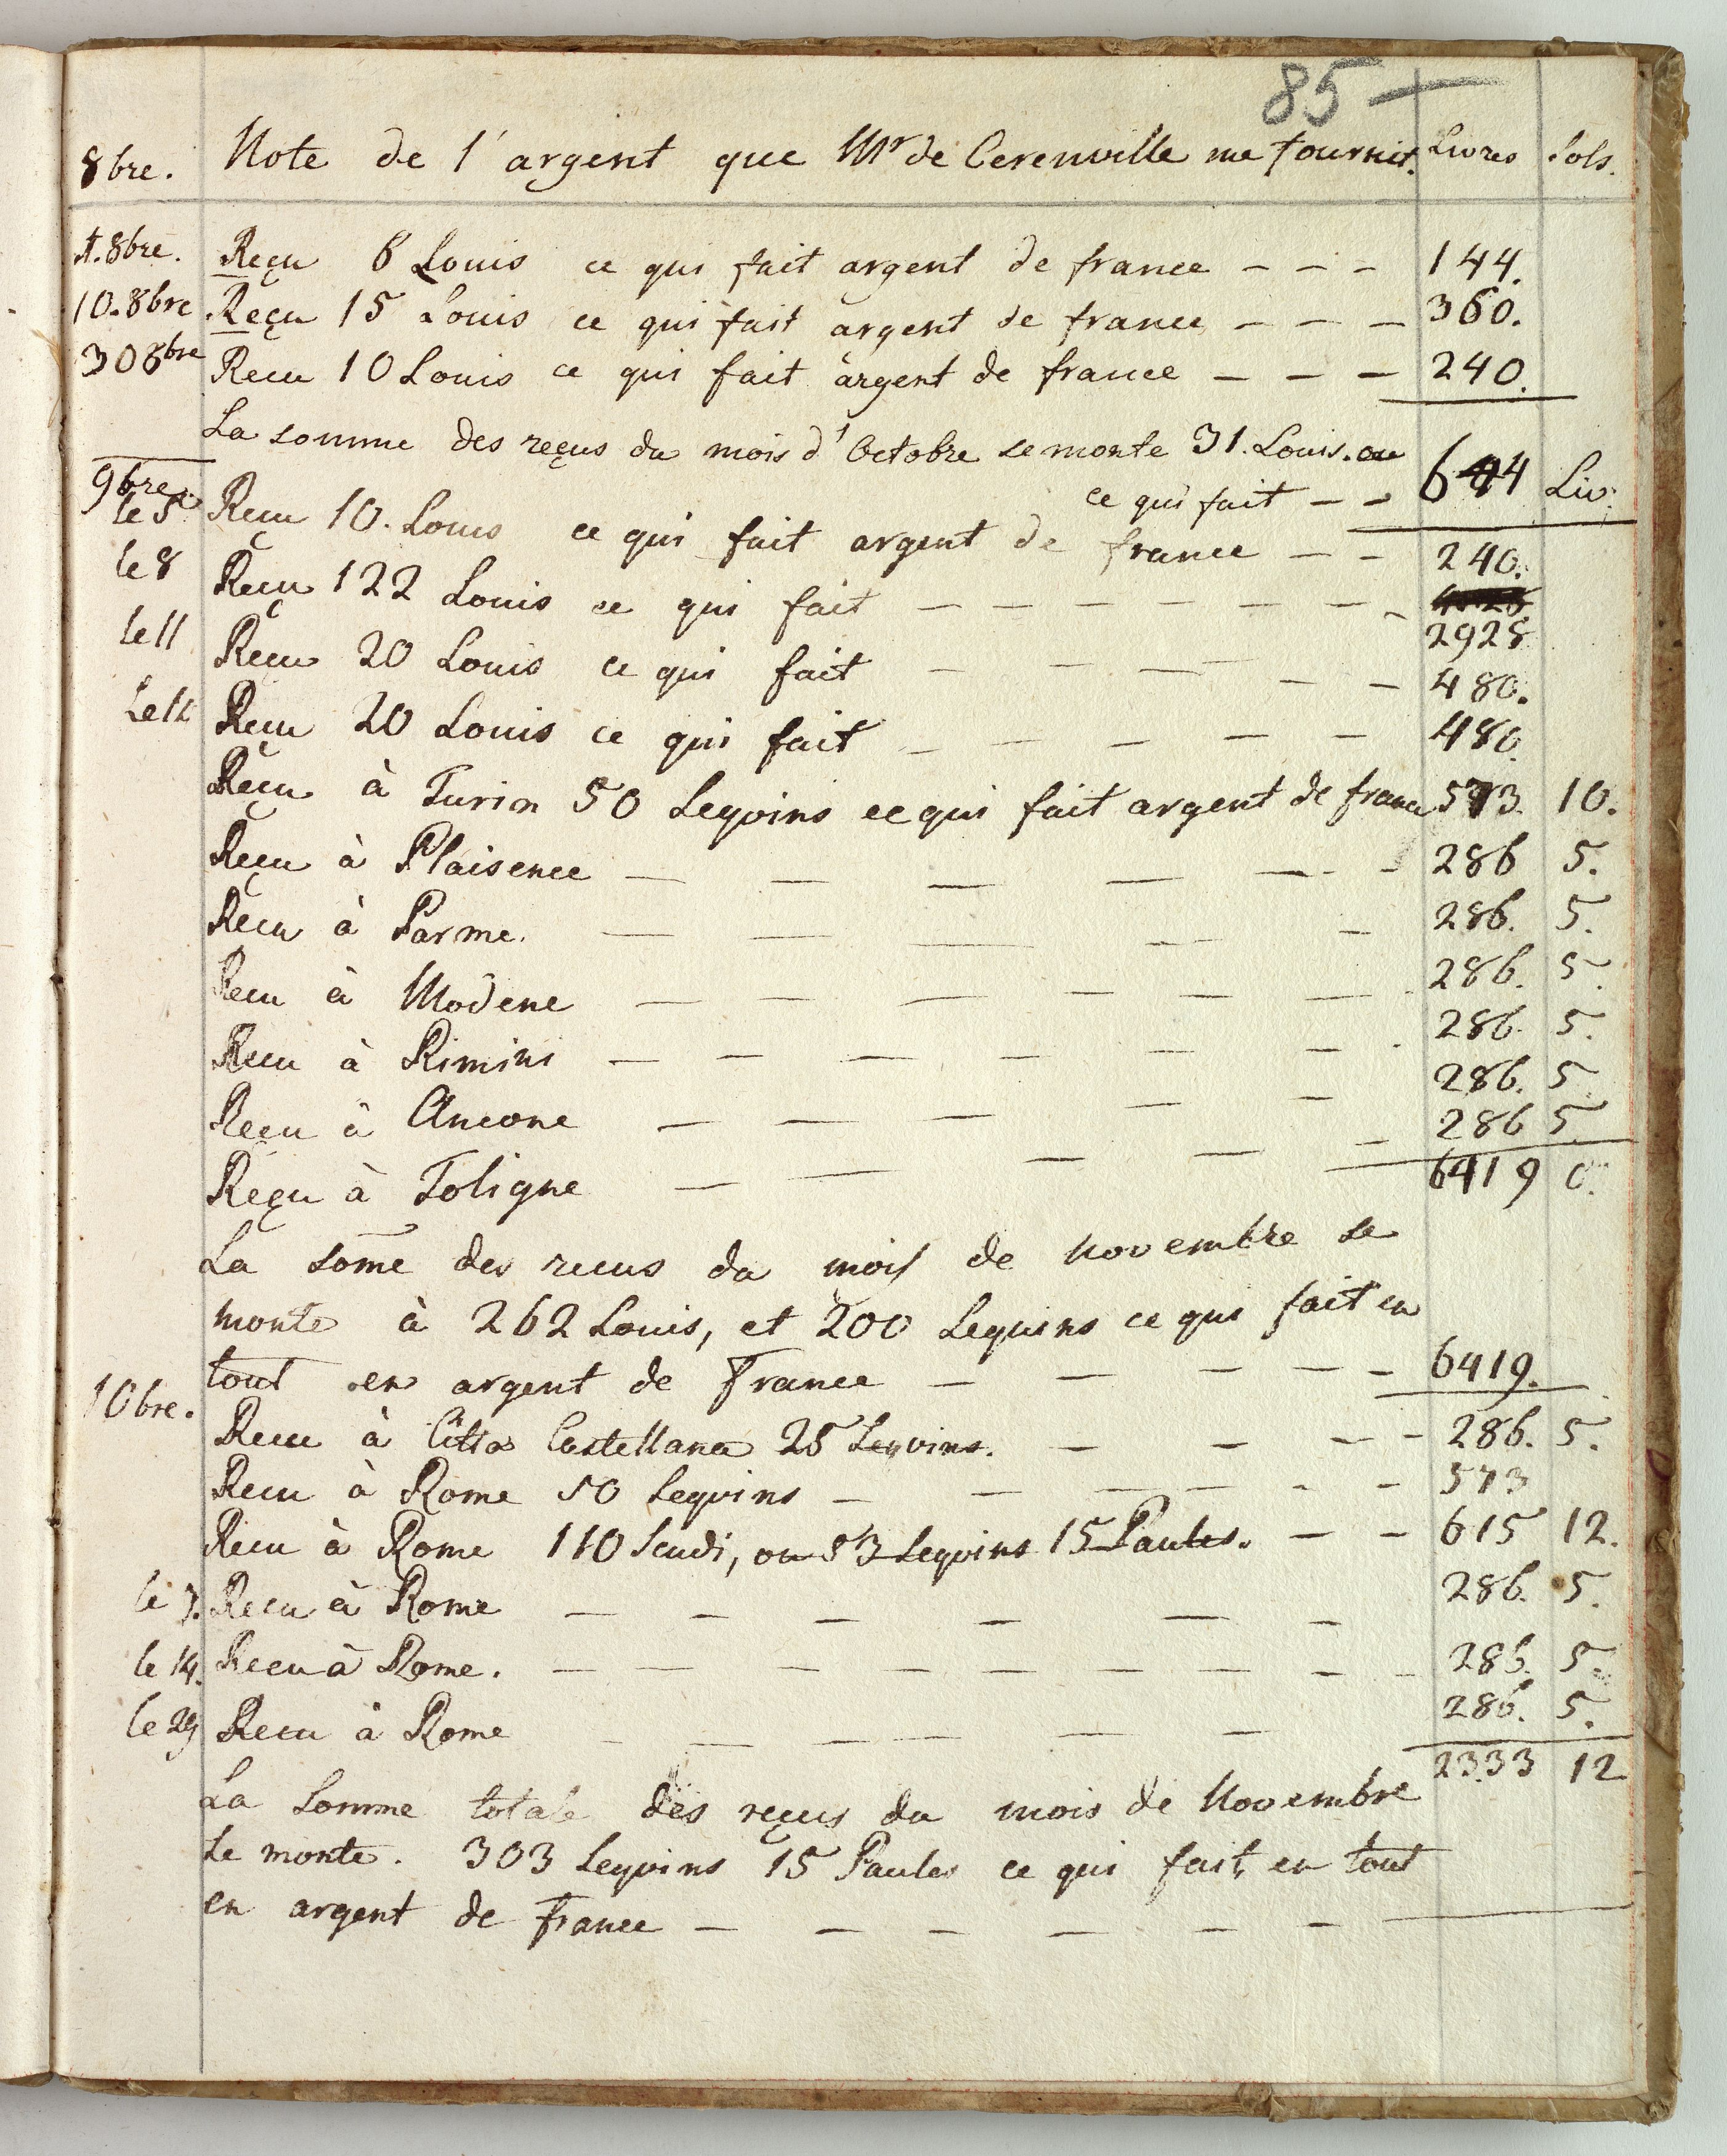 85 —
8bre. Note de l'argent que Mr de Cerenville me fournit. Livres sols.
1. 8bre. Reçu 6 Louis ce qui fait argent de france - - - 144.
10. 8bre Reçu 15 Louis ce qui fait argent de france - - - 360.
30 8bre Recu 10 Louis ce qui fait argent de france - - - 240.
La somme des reçus du mois d'Octobre se monte 31. Louis. ou
ce qui fait - - 644 Liv.
9bre.
le 5 Reçu 10. Louis ce qui fait argent de france - - 240.
le 8 Reçu 122 Louis ce qui fait - - - - - - - 2928
le 11 Reçu 20 Louis ce qui fait - - - - - 480.
Le 12 Reçu 20 Louis ce qui fait - - - - - 480.
Reçu à Turin 50 Sequins ce qui fait argent de france 573. 10.
Reçu à Plaisence - - - - - - 286 5.
Recu à Parme. - - - - - 286. 5.
Recu à Modene - - - - - - 286. 5.
Recu à Rimini - - - - - - 286. 5.
Reçu à Ancone - - - - - 286. 5
Reçu à Foligne - - - - - 286 5
6419 0.
La som̄e des recus du mois de Novembre se
monte à 262 Louis, et 200 Sequins ce qui fait en
tout en argent de France - - - - - 6419.
10bre. Recu à Citta Castellana 25 Sequins. - - - - 286. 5.
Recu à Rome 50 Sequins - - - - - - 573
Recu à Rome 110 Scudi, ou 53 Sequins 15 Paules. - - 615 12.
le 7. Recu à Rome - - - - - - 286. 5.
le 14. Recu à Rome. - - - - - - - - - 286. 5.
le 29 Recu à Rome - - - - - - 286. 5.
2333 12
La Somme totale des reçus du mois de Novembre
se monte. 303 Sequins 15 Paules ce qui fait en tout
en argent de France - - - - - -